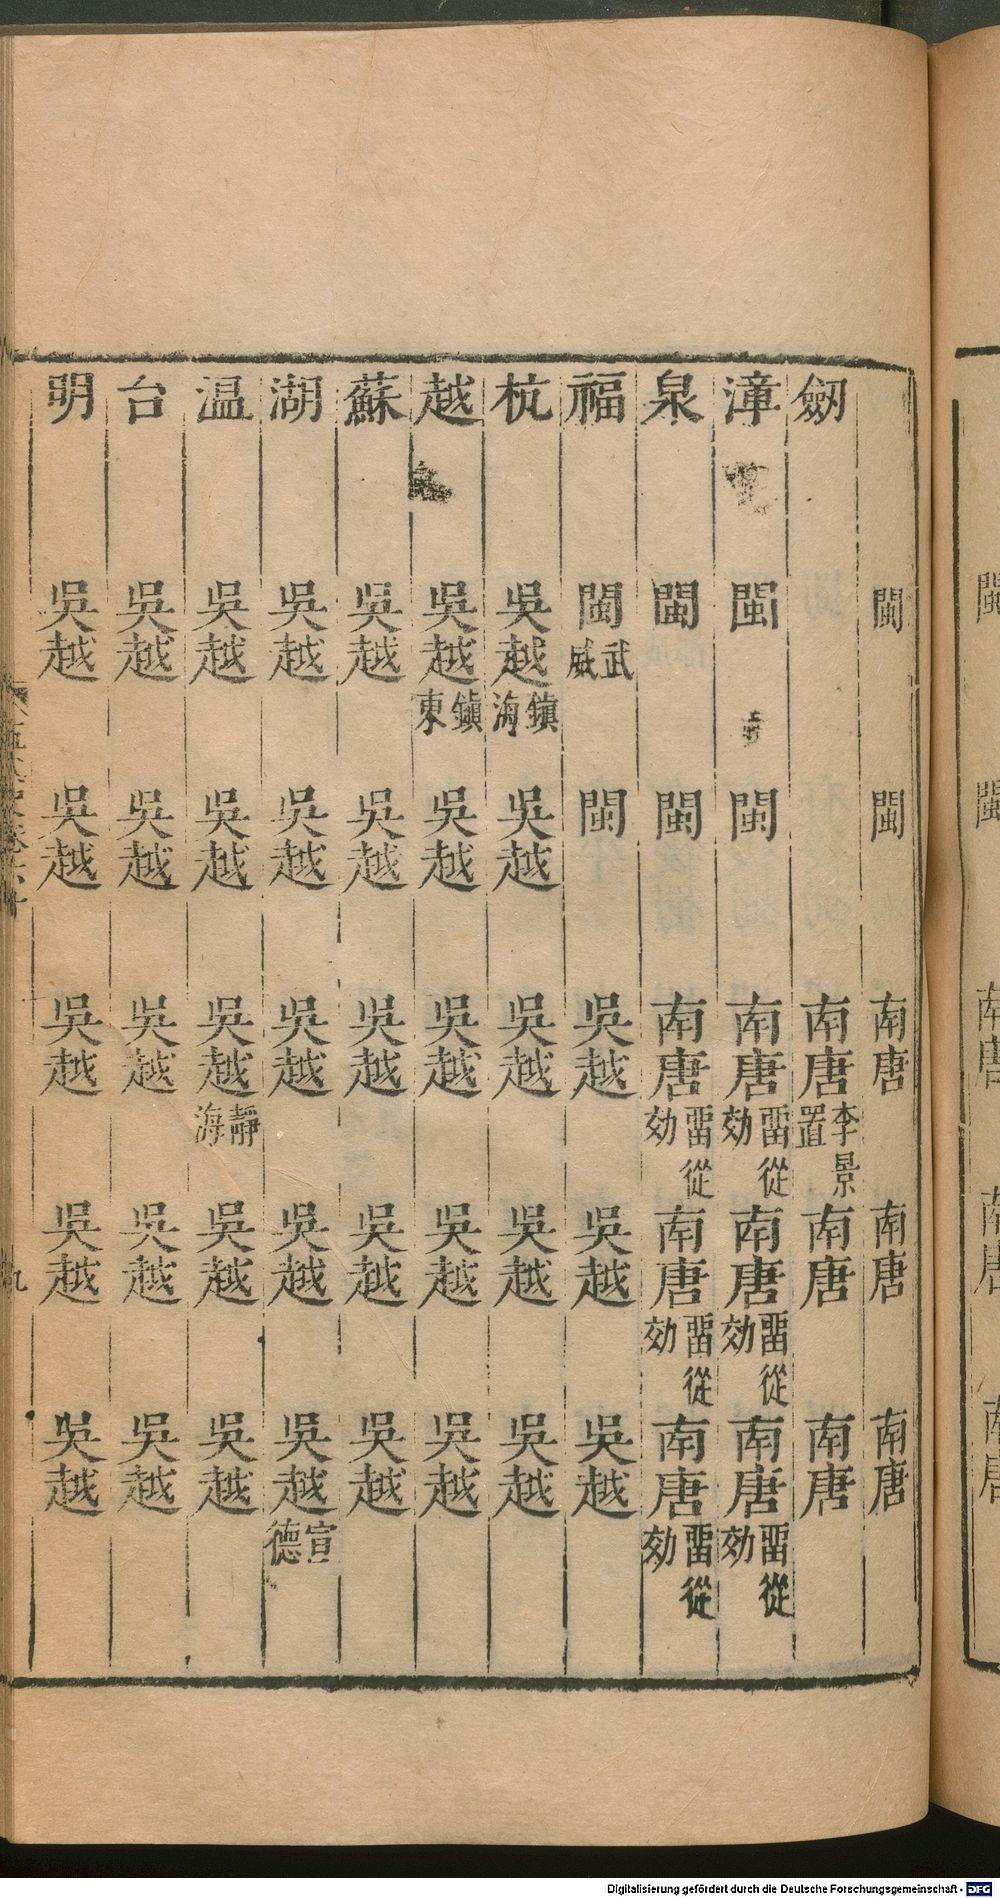 閩 閩 南唐 南唐 南唐
劒 南唐李景置 南唐 南唐
漳 閩 閩 南唐畱從効 南唐畱從効 南唐畱從効
泉 閩 閩 南唐畱從効 南唐畱從効 南唐畱從効
福 閩武威 閩 吳越 吳越 吳越
杭 吳越鎮海 吳越 吳越 吳越 吳越
越 吳越鎮東 吳越 吳越 吳越 吳越
蘇 吳越 吳越 吳越 吳越 吳越
湖 吳越 吳越 吳越 吳越 吳越宣德
温 吳越 吳越 吳越靜海 吳越 吳越
台 吳越 吳越 吳越 吳越 吳越
明 吳越 吳越 吳越 吳越 吳越
九
Digitalisierung gefördert durch die Deutsche Forschungsgemeinschaft - DFG